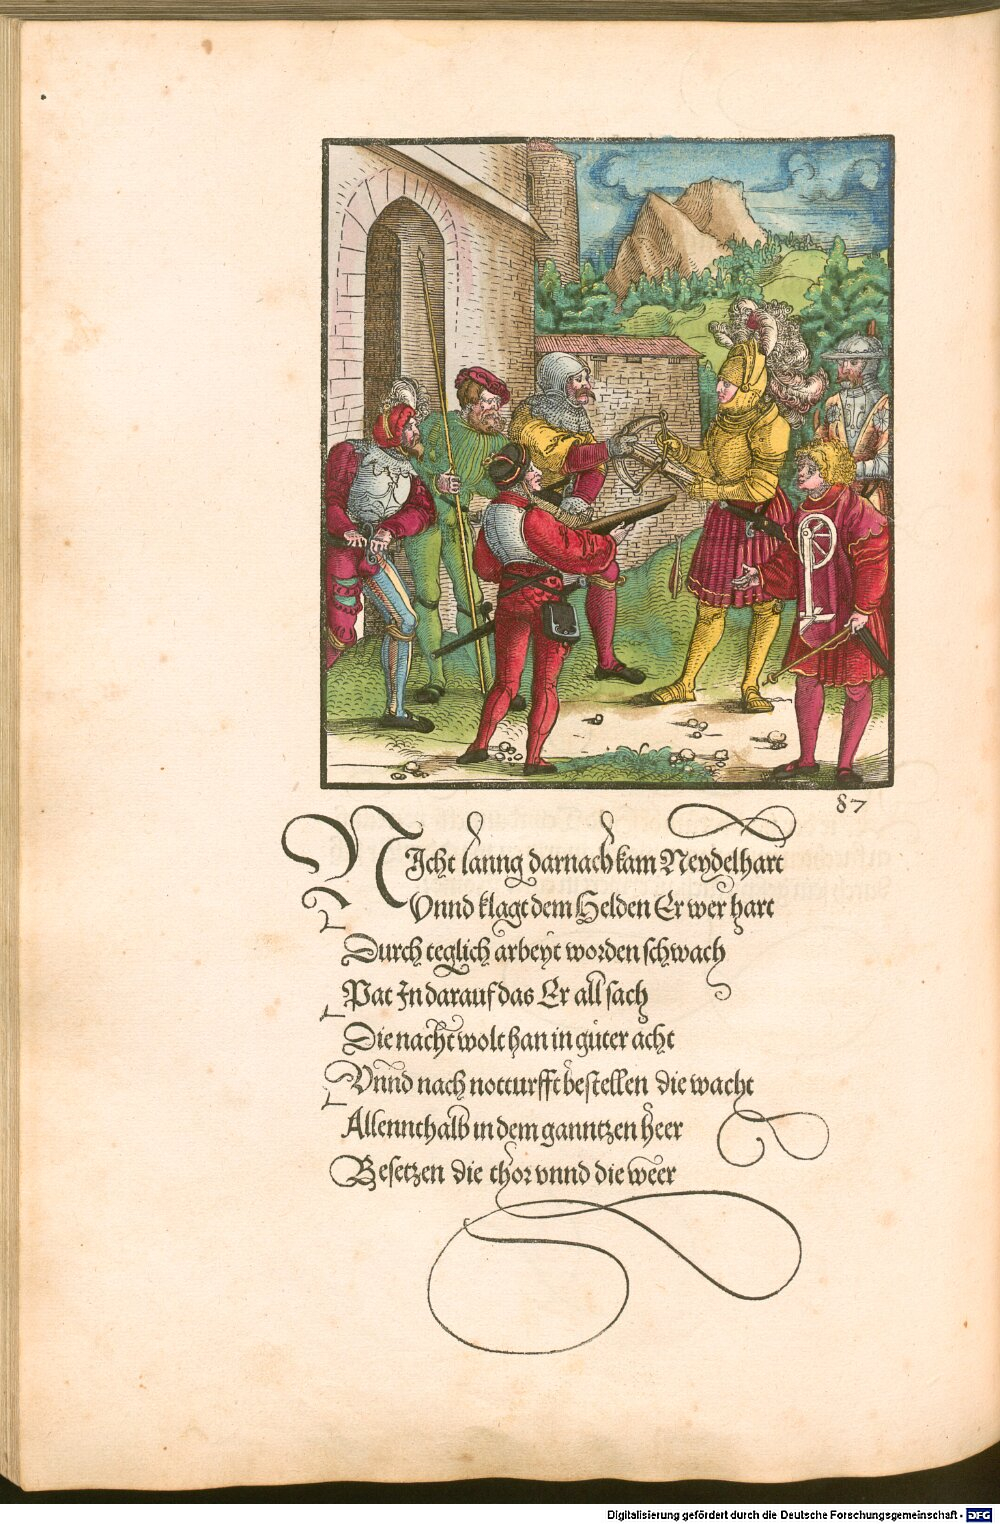 87
NIcht lanng darnach kam Neydelhart
Vnnd klagt dem Helden Er wer hart
Durch teglich arbeyt worden schwach
Pat In darauf das Er all sach
Die nacht wolt han in gůter acht
Vnnd nach notturfft bestellen die wacht
Allennthalb in dem ganntzen heer
Besetzen die thor vnnd die weer
Digitalisierung gefördert durch die Deutsche Forschungsgemeinschaft - DFG